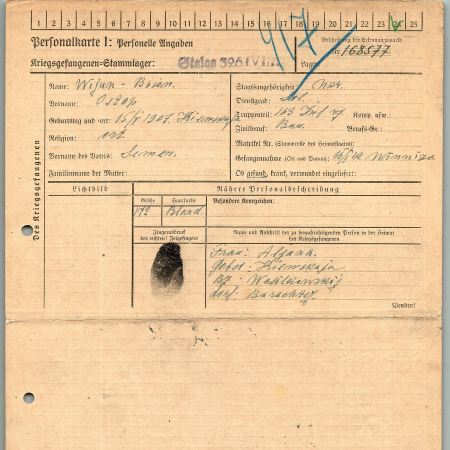 1 2 3 4 5 6 7 8 9 10 11 12 13 14 15 16 17 18 19 20 21 22 23 24 25
Personalkarte I: Personelle Angaben
Beschriftung der Erkennungsmarke
Nr. 168577
Kriegsgefangenen-Stammlager: Stalag 326 (VI K)
Lager:
917
Des Kriegsgefangenen
Name: Wijun - Boien.
Vorname: Ostap
Geburtstag und -ort: 15/V 1907. Kiewskaja
Religion: ort.
Vorname des Vaters: Semen.
Familienname der Mutter:
Staatsangehörigkeit:
Dienstgrad: Sol.
Truppenteil: 103 Inf rg Komp. usw.:
Zivilberuf: Bau. Berufs-Gr.:
Matrikel Nr. (Stammrolle des Heimatstaates):
Gefangennahme (Ort und Datum): Winniza
Ob gesund, krank, verwundet eingeliefert:
Lichtbild
Nähere Personalbeschreibung
Größe Haarfarbe Besondere Kennzeichen:
172 Bland.
Fingerabdruck
des rechten! Zeigefingers
Name und Anschrift der zu benachrichtigenden Person in der Heimat
des Kriegsgefangenen
Frau:
Gebit - Kiewskaja
Wasilkowskij
Dorf: Barachtej
Wenden!